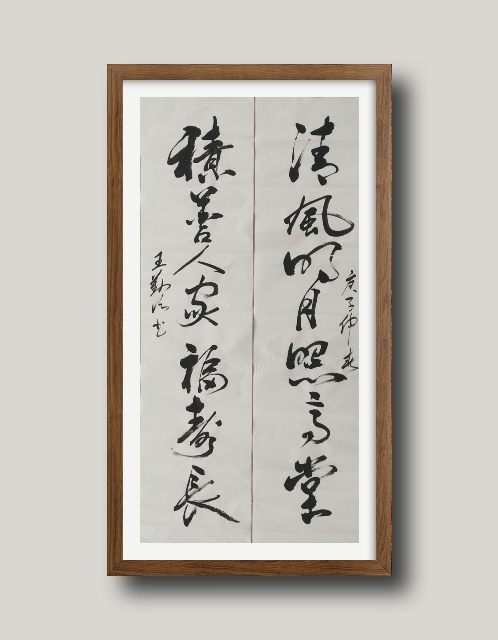 庚子仲春
清風明月照高堂
積善人家福壽長
王勤书